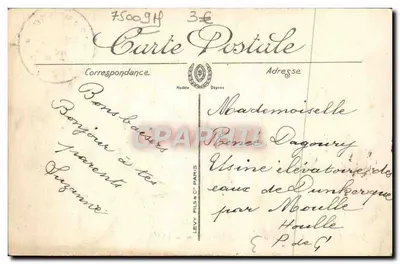 75009H 3€
Carte Postale
Correspondance
Adresse
Modèle Déposé
Bons baisers
Bonjour à tes
parents
Suzanne
LEVY FILS & Cie PARIS
CPARAMA
Mademoiselle
Renée Dagoury
Usine élévatoire des
eaux de Dunkerque
par Moulle
Houlle
P. de C